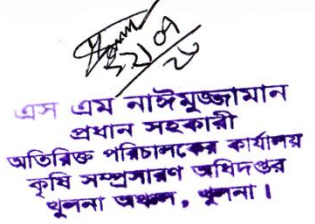 ২১/০৭/২০
এস এম নাঈমুজ্জামান
প্রধান সহকারী
অতিরিক্ত পরিচালকের কার্যালয়
কৃষি সম্প্রসারণ অধিদপ্তর
খুলনা অঞ্চল, খুলনা।